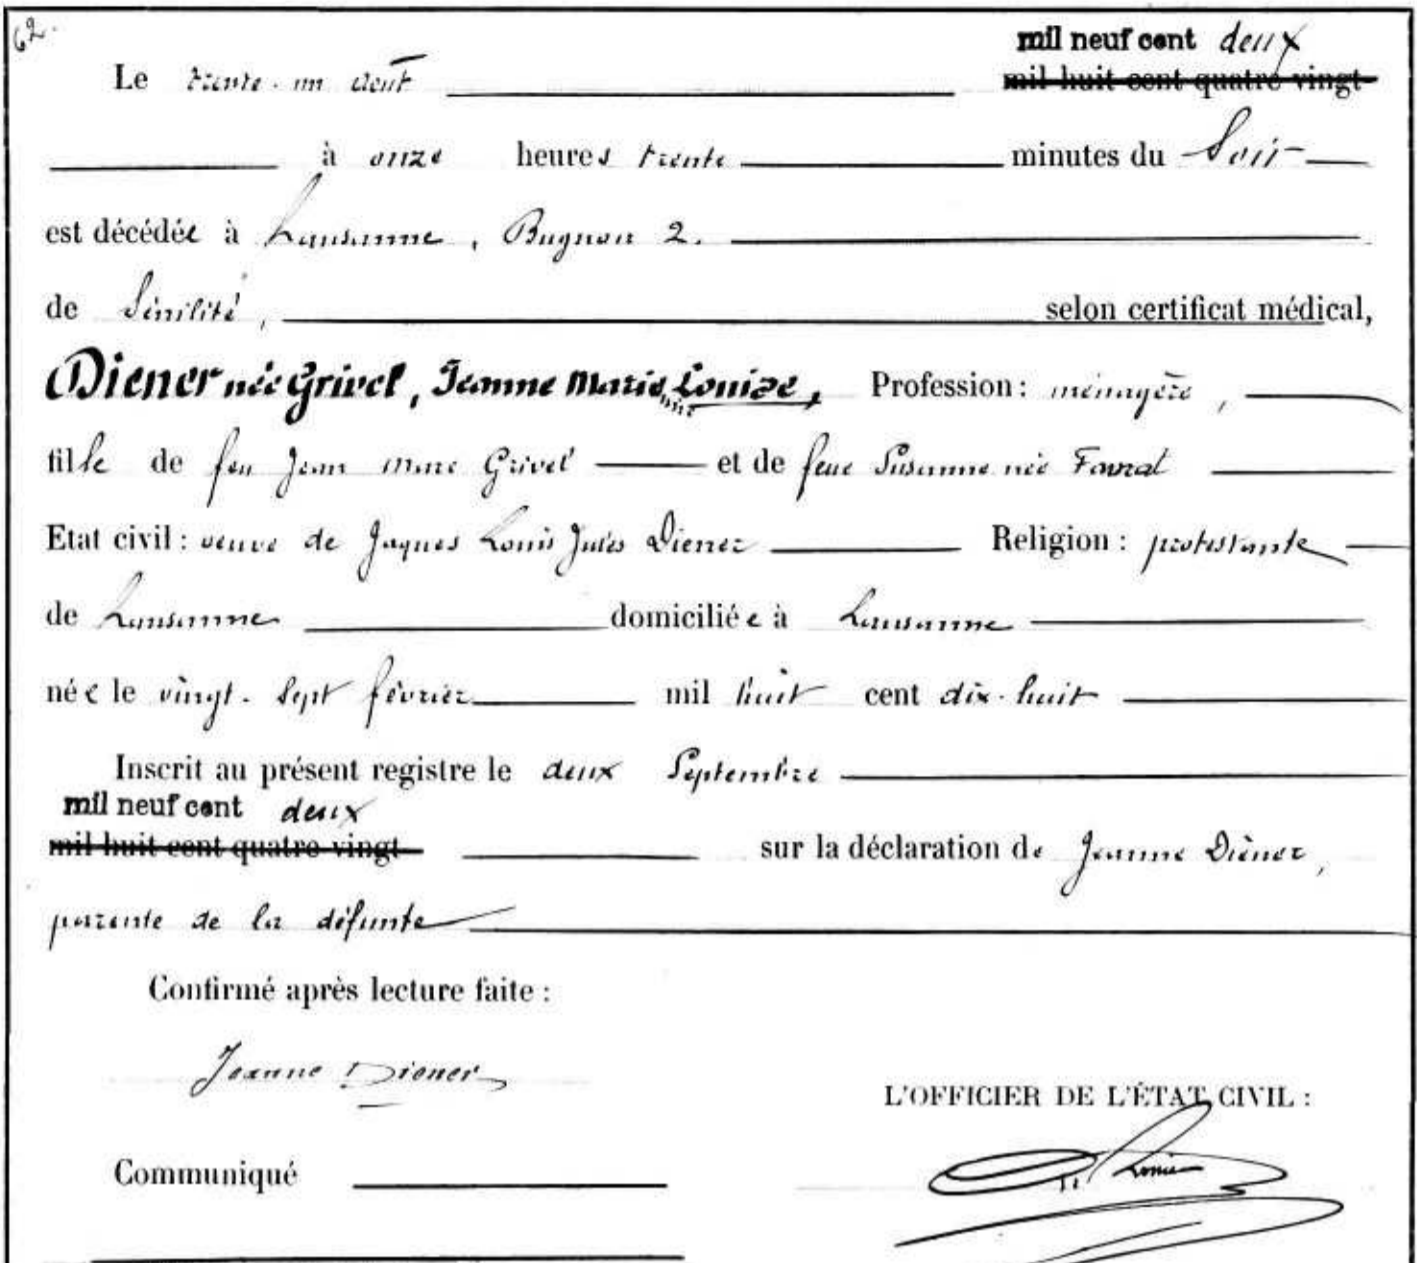 62.
mil neuf cent deux
Le trente-un août mil huit cent quatre-vingt
à onze heures trente minutes du Soir
est décédée à Lausanne, Bugnon 2.
de Sénilité, selon certificat médical,
Diener née Grivel, Jeanne Marie Louise, Profession: ménagère,
fille de feu Jean Marc Grivel et de feue Susanne née
Etat civil: veuve de Jaques Louis Jules Diener Religion: protestante
de Lausanne domiciliée à Lausanne
née le vingt-sept février mil huit cent dix-huit
Inscrit au présent registre le deux Septembre
mil neuf cent deux
mil huit cent quatre-vingt sur la déclaration de Jeanne Diener,
parente de la défunte
Confirmé après lecture faite:
Jeanne Diener
L'OFFICIER DE L'ÉTAT CIVIL:
Communiqué